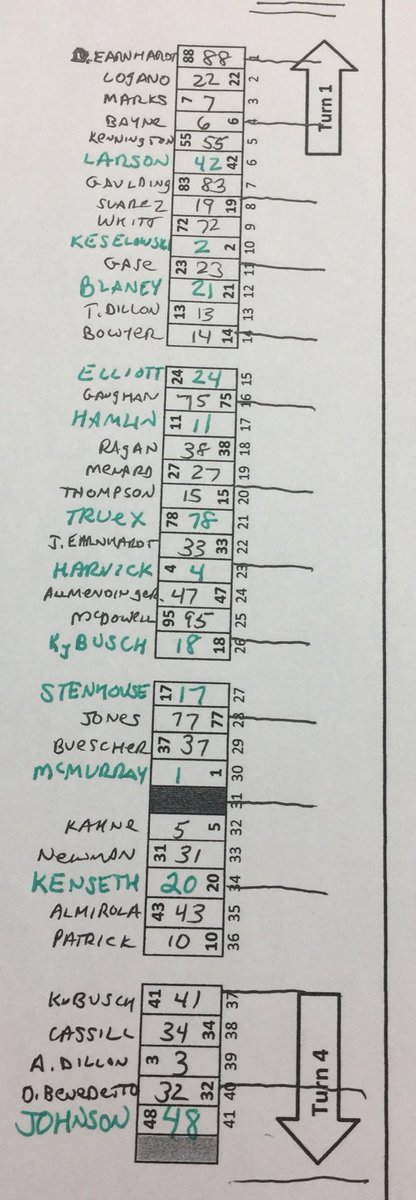 D. EARNHARDT 88 88 1
LOGANO 22 22 2
MARKS 7 7 3
BAYNE 6 6 4
KENNINGTON 55 55 5
LARSON 42 42 6
GAULDING 83 83 7
SUAREZ 19 19 8
WHITT 72 72 9
KESELOWSKI 2 2 10
GASE 23 23 11
BLANEY 21 21 12
T. DILLON 13 13 13
BOWYER 14 14 14
Turn 1
ELLIOTT 24 24 15
GAUGHAN 75 75 16
HAMLIN 11 11 17
RAGAN 38 38 18
MENARD 27 27 19
THOMPSON 15 15 20
TRUEX 78 78 21
J. EARNHARDT 33 33 22
HARVICK 4 4 23
ALLMENDINGER 47 47 24
MCDOWELL 95 95 25
KyBUSCH 18 18 26
STENHOUSE 17 17 27
JONES 77 77 28
BUESCHER 37 37 29
MCMURRAY 1 1 30
31
KAHNE 5 5 32
NEWMAN 31 31 33
KENSETH 20 20 34
ALMIROLA 43 43 35
PATRICK 10 10 36
KuBUSCH 41 41 37
CASSILL 34 34 38
A. DILLON 3 3 39
D. BENEDETTO 32 32 40
JOHNSON 48 48 41
Turn 4